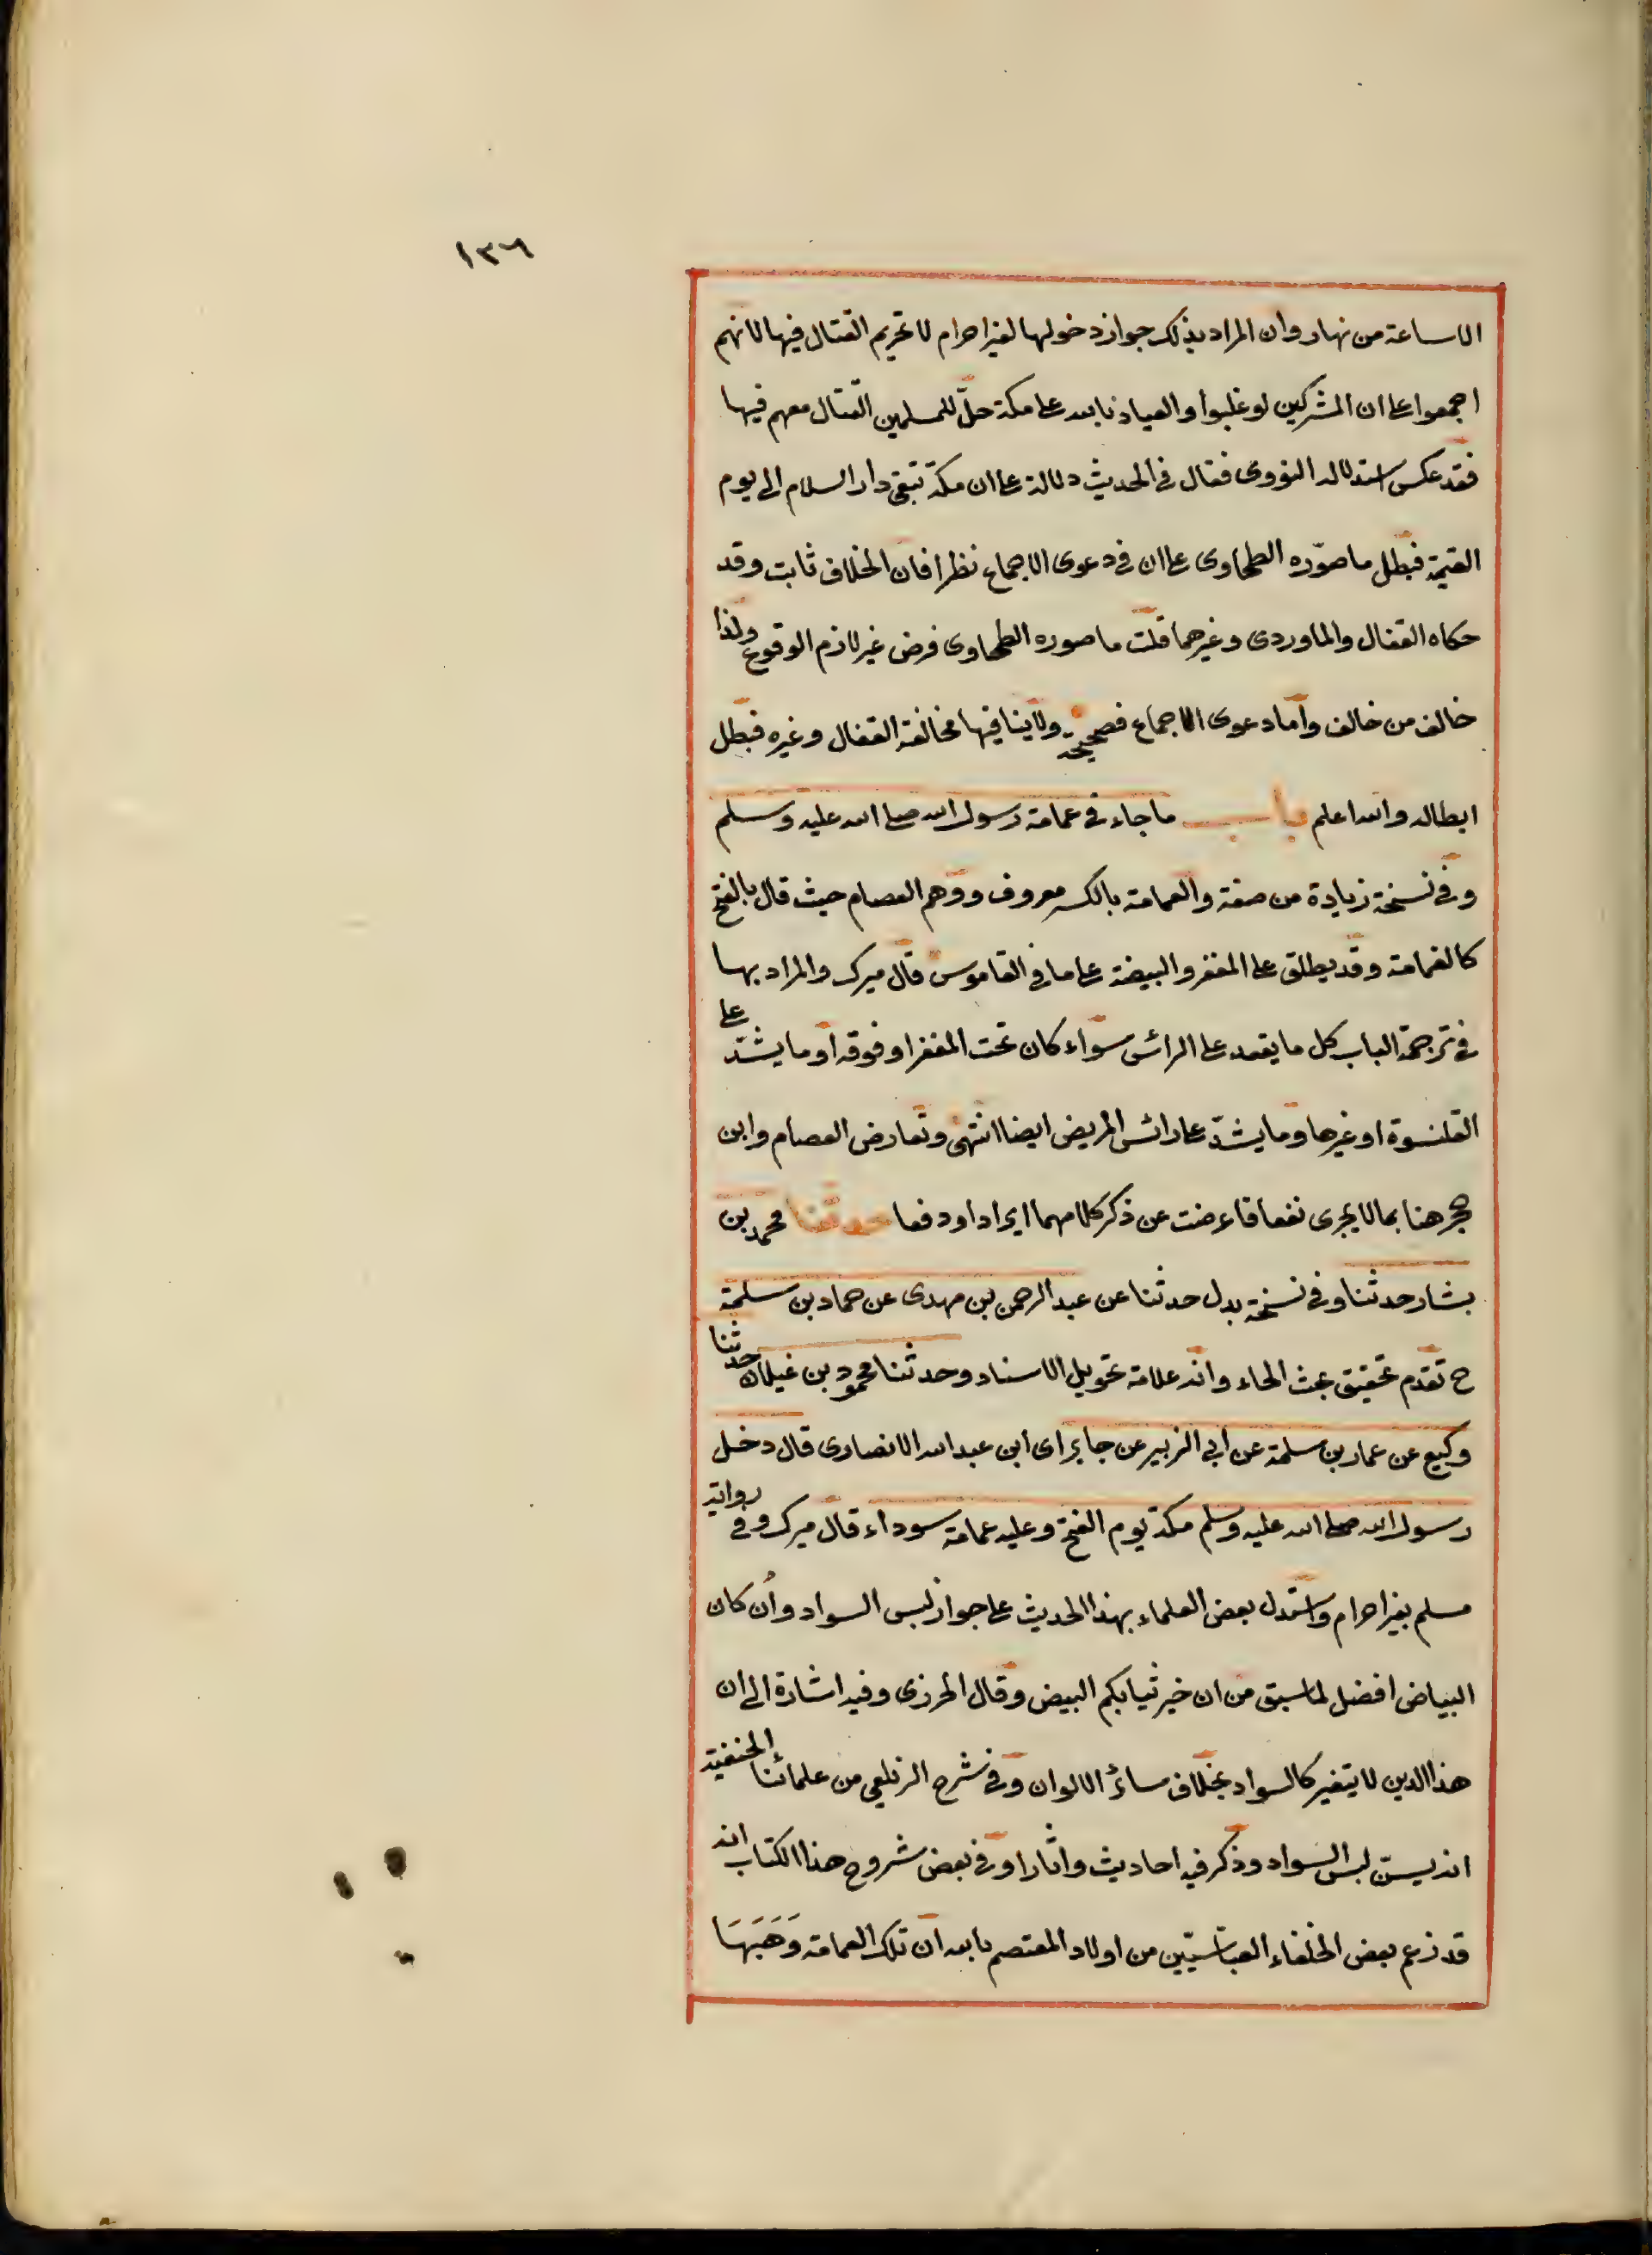 ١٣٦
الا ساعة من نهار وان المراد بذلك جواز دخولها لغير احرام لا تحريم القتال فيها لانهم
اجمعوا على ان المشركين لو غلبوا والعياذ بالله على مكة حلّ للمسلمين القتال معهم فيها
فقد عكس استدلاله النووى فقال فى الحديث دلالة على ان مكة تبقى دار السلام الى يوم
القيمة فبطل ما صوّره الطحاوى على ان فى دعوى الاجماع نظرا فان الخلاف ثابت وقد
حكاه القفال والماوردى وغيرهما قلت ما صوره الطحاوى فرض غير لازم الوقوع ولذا
خالف من خالف وأما دعوى الاجماع فصحيحة ولا ينافيها مخالفة القفال وغيره فبطل
ابطاله والله اعلم باب ما جاء فى عمامة رسول الله صلى الله عليه وسلم
وفى نسخة زيادة من صفة والعمامة بالكسر معروف ووهم العصام حيث قال بالفتح
كالغمامة وقد يطلق على المغفر والبيضة على ما فى القاموس قال ميرك والمراد بها
فى ترجمة الباب كل ما يعقد على الرائس سواء كان تحت المغفر او فوقه او ما يشدّ على
القلنسوة او غيرها وما يشدّ على رائس المريض ايضا انتهى وتعارض العصام وابن
حجر هنا بما لا يجرى نفعا فاعرضت عن ذكر كلامهما ايرادا ودفعا حدثنا محمد بن
بشار حدثنا وفى نسخة بدل حدثنا عن عبد الرحمن بن مهدى عن حماد بن سلمة
ح تقدم تحقيق بحث الحاء وانه علامة تحويل الاسناد وحدثنا محمود بن غيلان حدثنا
وكيع عن عمار بن سلمة عن ابى الزبير عن جابر اى ابن عبد الله الانصارى قال دخل
رسول الله صلى الله عليه وسلم مكة يوم الفتح وعليه عمامة سوداء قال ميرك وفى رواية
مسلم بغير احرام واستدل بعض العلماء بهذا الحديث على جواز لبس السواد وان كان
البياض افضل لما سبق من ان خير ثيابكم البيض وقال الجزرى وفيه اشارة الى ان
هذا الدين لا يتغير كالسواد بخلاف سائر الالوان وفى شرح الزيلعى من علمائنا الحنفية
انه يسنّ لبس السواد وذكر فيه احاديث واثارا وفى بعض شروح هذا الكتاب انه
قد زعم بعض الخلفاء العباسيّين من اولاد المعتصم بالله ان تلك العمامة وَهَبَهَا